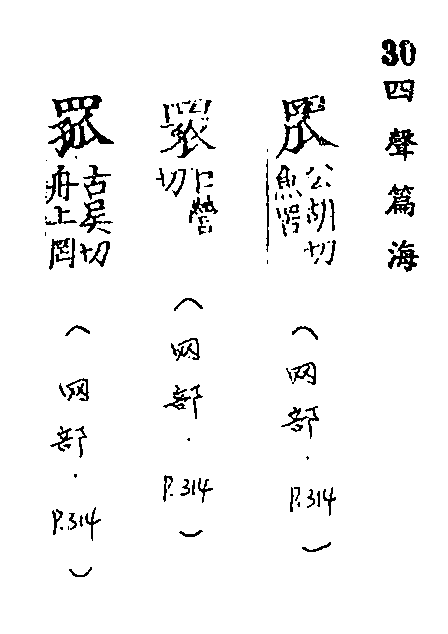 30四聲篇海
公胡切
魚罟
(网部·P.314)
口營
切
(网部·P.314)
罛
古吳切
舟上罔
(网部·P.314)